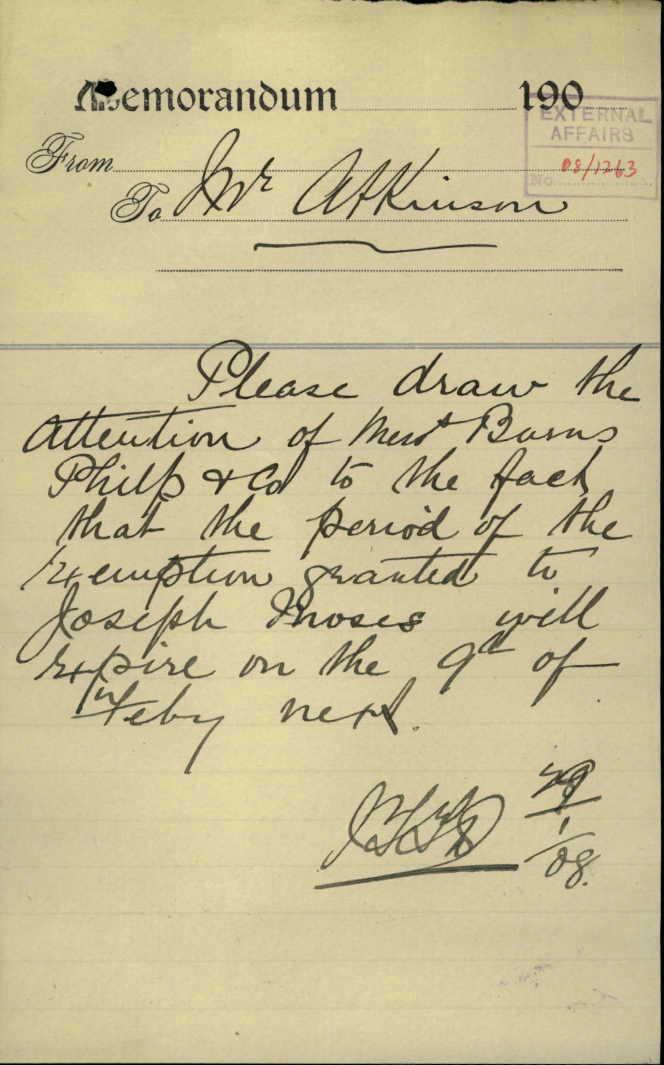 Memorandum 190
EXTERNAL
AFFAIRS
No. 08/1263
From
To Mr Atkinson
Please draw the
Attention of Messrs Burns
Philp & Co to the fact
that the period of the
Exemption granted to
Joseph Moses will
Expire on the 9th of
Feby next.
29
1
/08.